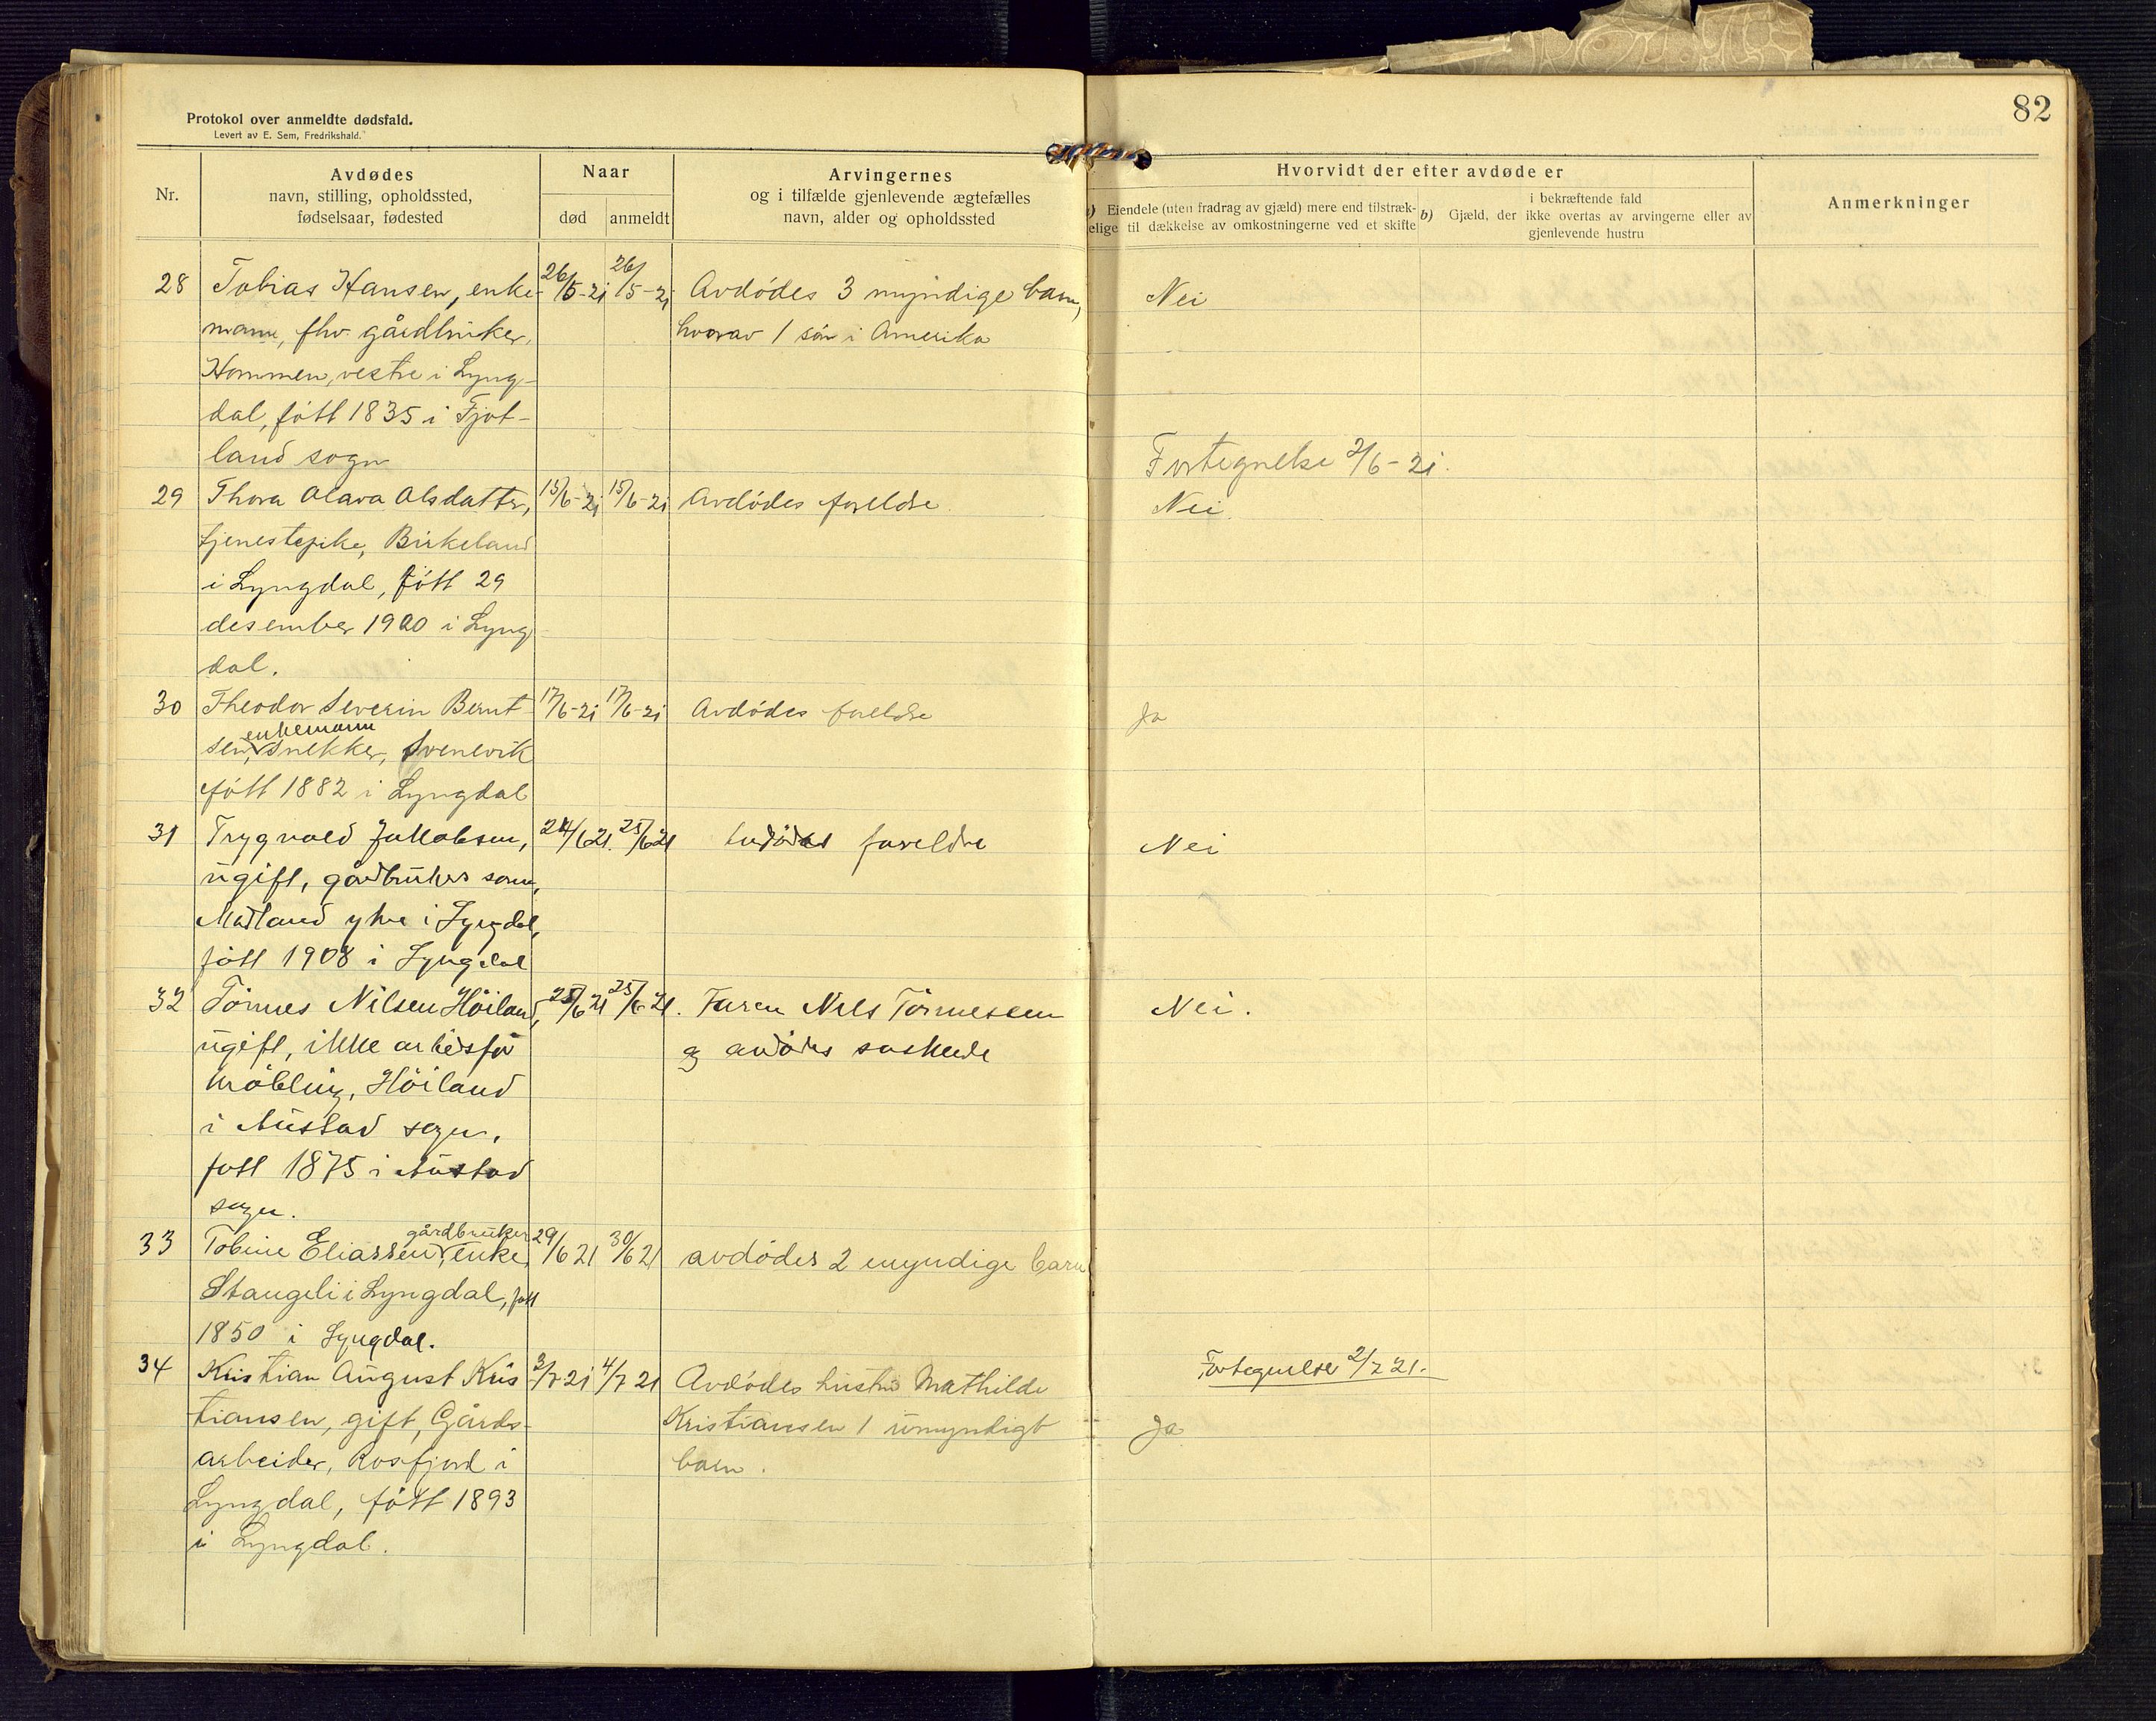 82
Protokol over anmeldte dødsfald.
Levert av E. Sem, Fredrikshald.
Nr.
Avdødes
navn, stilling, opholdssted,
fødselsaar, fødested
Naar
død
anmeldt
Arvingernes
og i tilfælde gjenlevende ægtefælles
navn, alder og opholdssted
Hvorvidt der efter avdøde er
a) Eiendele (uten fradrag av gjæld) mere end tilstræk-
elige til dækkelse av omkostningerne ved et skifte
b) Gjæld, der
i bekræftende fald
ikke overtas av arvingerne eller av
gjenlevende hustru
Anmerkninger
28 Tobias Hansen, enke- 26/5-21 26/5-21 Avdødes 3 myndige barn, Nei
mann, fhv. gårdbruker, hvorav 1 søn i Amerika
Hommen, vestre i Lyng-
dal, født 1835 i Fjot-
land sogn
Fortegnelse 2/6-21.
29 Thora Olava Olsdatter, 15/6-21 15/6-21 Avdødes foreldre Nei
tjenestepike, Birkeland
i Lyngdal, født 29
desember 1900 i Lyng
dal.
30 Theodor Severin Bernt- 17/6-21 17/6-21 Avdødes foreldre Ja
enkemann
sen, snekker, Svenevik
født 1882 i Lyngdal
31 Trygvald Jakobsen, 24/6 21. 25/6 21 Avdødes foreldre Nei
ugift, gårdbrukers sønn,
Madland ytre i Lyngdal,
født 1908 i Lyngdal
32 Tönnes Nilsen Höiland, 25/6 21 25/6-21. Faren Nils Tönnesen Nei.
ugift, ikke arbeidsför og avdödes söskende
kröbling, Höiland
i Austad sogn,
født 1875 i Austad
sogn.
gårdbruker
33 Tobine Eliassen, enke, 29/6 21 30/6 21 avdødes 2 myndige barn
Stangeli i Lyngdal, født
1850 i Lyngdal.
Fortegnelse 2/7 21.
34 Kristian August Kris- 3/7-21 4/7 21 Avdødes hustru Mathilde
tiansen, gift, Gårds- Kristiansen 1 umyndigt Ja
arbeider, Rosfjord i barn.
Lyngdal, født 1893
i Lyngdal.